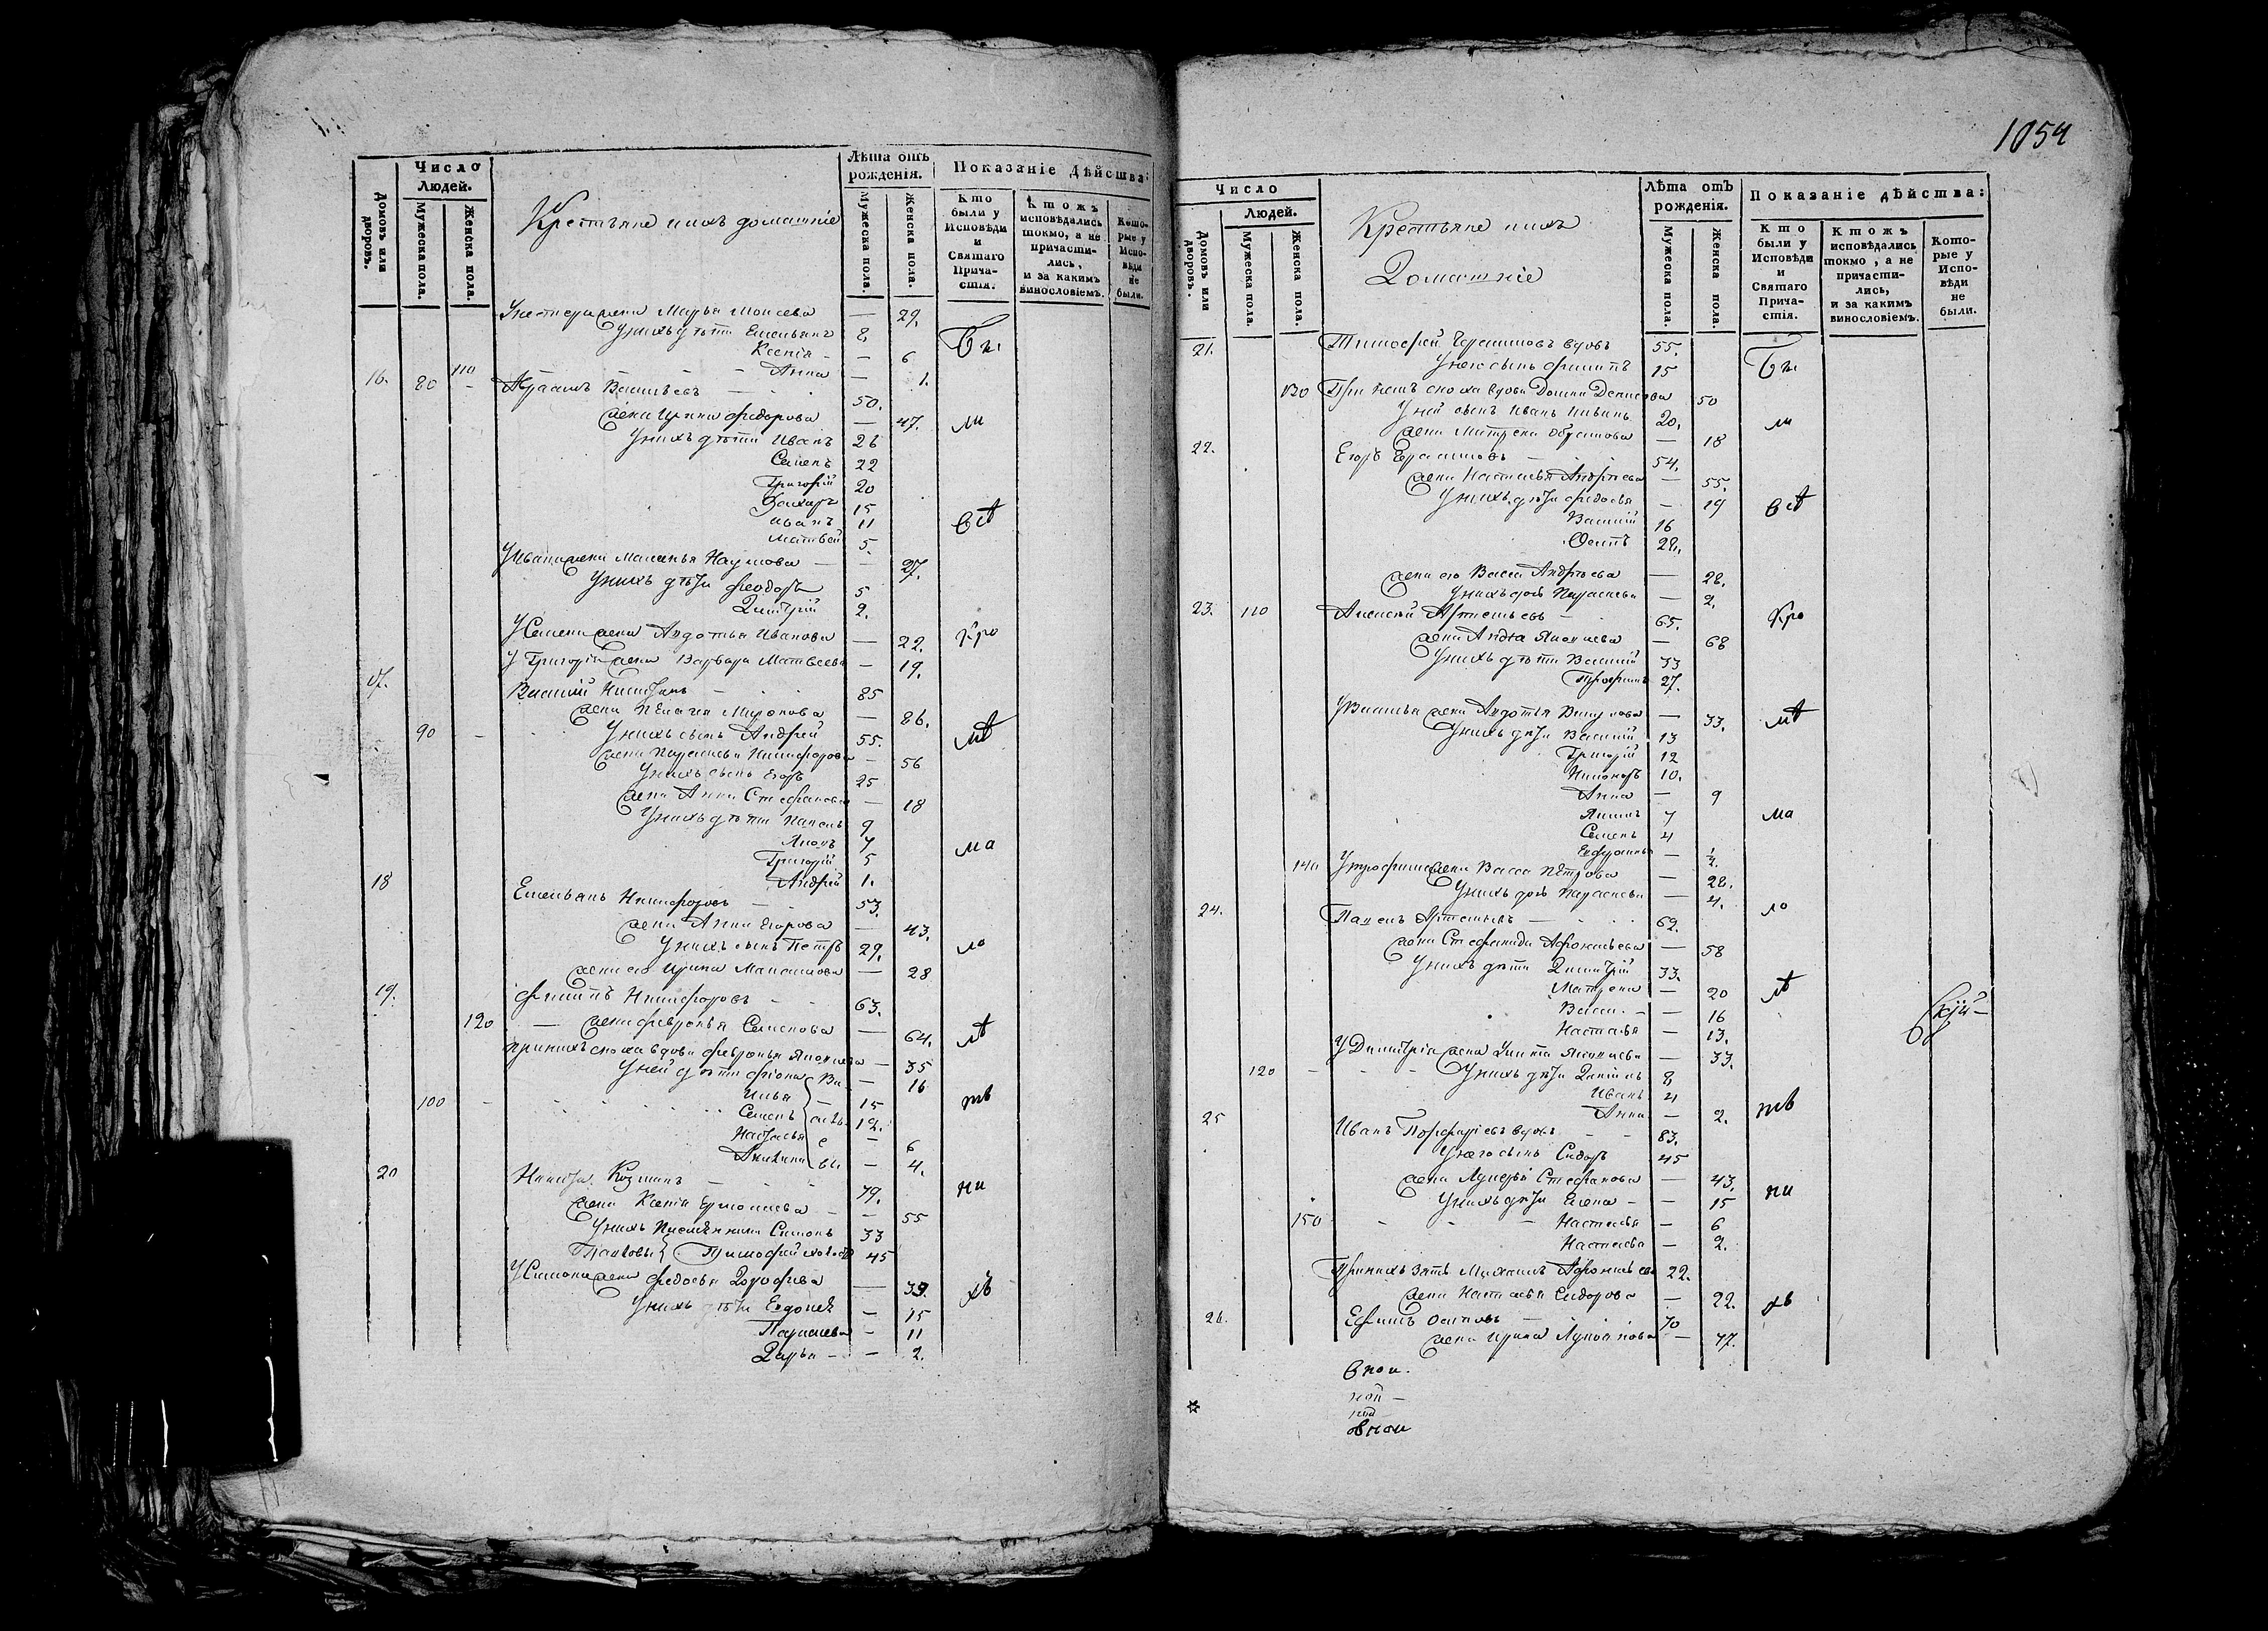 Число Людей.
Лѣта отъ рожденія.
Показаніе Дѣйства:
Домовъ или дворовъ.
Мужеска пола.
Женска пола.
Крестьяне ихъ домашніе
Мужеска пола.
Женска пола.
Кто были у Исповѣди и Святаго Прича-стія.
Ктожъ исповѣдались токмо, а не причасти-лись, и за какимъ винословіемъ.
Кото-рые у Испо-вѣди не были.
жена Марья Моисева — 29.
У нихъ дѣти Емельянъ 8 Бы
Ксенія — — 6
110 Анна — 1.
16. 80 — Абрамъ Васильевъ — 50.
жена Ирина Федорова — 47. ли
У нихъ дѣти Иванъ 26
Семенъ 22
Григорій 20
Захаръ 15
Иванъ 11 всѣ
Матвей 5.
У Ивана жена Маланья Наумова — — 27.
У нихъ дѣти Феодоръ 5
Димитрій 2.
У Семена жена Авдотья Иванова — 22. кро
У Григорія жена Варвара Матвеева — 19.
17. Василій Никитинъ — 85
жена Пелагея Миронова — 86.
90 — У нихъ сынъ Андрей 55. мѣ
жена Параскевья Никифорова — 56
У нихъ сынъ Егоръ 25
жена Анна Стефанова — 18
У нихъ дѣти 9
Яковъ 7 ма
Григорій 5
Андрей 1.
18 Емельянъ Никифоровъ — 53.
жена Анна Егорова — 43.
У нихъ сынъ Петръ 29. ло
жена его Ирина Максимова — 28
19. Филипъ Никифоровъ 63.
120 — жена Февронья Семенова — 64. лѣ
При нихъ сноха вдова Февронья Яковлева — 35
У ней дѣти — 16
Илья 15 тв
100 — Семенъ 12.
Наталья — 6
— 4.
20 Никита Козминъ — 79. ни
жена Ксенія Ермолаева — — 55
У нихъ Симонъ 33
Тимофей холостъ 45
У Симона жена Федосья Дорофева — 39. хъ
У нихъ дѣти Евдокія — 15
Параскева — 11
Дарья — — 2.
1054
Число Людей.
Лѣта отъ рожденія.
Показаніе дѣйства:
Домовъ или дворовъ.
Мужеска пола.
Женска пола.
Крестьяне ихъ
Домашніе
Мужеска пола.
Женска пола.
Кто были у Исповѣди и Святаго Прича-стія.
Ктожъ исповѣдались токмо, а не причасти-лись, и за какимъ винословіемъ.
Кото-рые у Испо-вѣди не были.
21. Тимофей Герасимовъ вдовъ 55. Бы
У него сынъ Филипъ 15
130 При немъ сноха вдова Домна Денисова 50
У ней сынъ Иванъ 20. ли
жена Матрена Абрамова — 18
22. Егоръ Герасимовъ — 54.
жена Настасья Андреева — 55.
У нихъ дѣти Федосья — 19 всѣ
Василій 16
Осипъ 28.
жена его Васса Андреева — 28.
У нихъ дочь Параскева — 2.
23. 110 Алексей Артемьевъ — 65. кро
жена Анна Яковлева — 68
У нихъ дѣти Василій 33
Трофимъ 27.
У Василья жена Авдотья — 33. мѣ
У нихъ дѣти Василій 13
Григорій 12
Никоноръ 10.
Анна — 9
Якимъ 7 ма
Семенъ 4
— ½.
140 У Трофима жена Васса Петрова — 28.
У нихъ дочь Параскева — 4.
24. Артемьевъ — 62. ло
жена Стефанида Афонасьева — 58
У нихъ дѣти Димитрій 33.
Матрена — 20 лѣ
Васса — — 16
Настасья — 13.
У Димитрія жена Яковлева — 33.
120 — — — У нихъ дѣти 8
Иванъ 4
Анна — 2. тв
25 Иванъ Порфирьевъ вдовъ — — 83.
У него сынъ Сидоръ 45
жена Лукерья Стефанова — 43.
У нихъ дѣти Елена — — 15 ни
150 — — — Настасья — 6
Настасья — 2.
При нихъ зять Михаилъ Афонасьевъ 22.
жена Наталья Сидорова — 22. хъ
26. Ефимъ Осиповъ — 70
жена Ирина Лукьянова — 47.